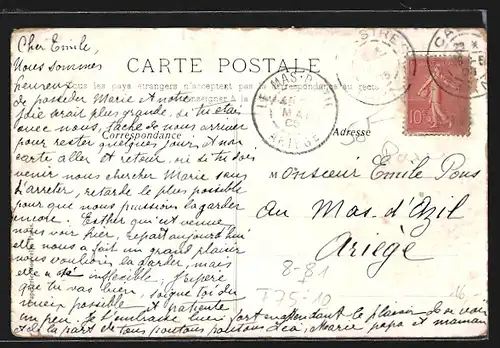 CARTE POSTALE
Tous les pays étrangers n'acceptent pas la Correspondance au recto
Correspondance
Adresse
LE MAS-D'AZIL
MAI
05
ARIÈGE
CASTRES
10
Cher Emile,
Nous sommes
heureux
de posséder Marie et notre
joie serait plus grande, si tu étais
avec nous, tâche de nous arriver
pour rester quelques jours, et non
carte aller et retour, si tu dois
venir nous chercher Marie sans
t'arrêter, retarde le plus possible
pour que nous puissions la garder
encore. Esther qui est venue
nous voir hier, repart aujourd'hui
elle nous a fait un grand plaisir
nous voulions la garder, mais
elle a été inflexible; J'espère
que tu vas bien, soigne toi du
mieux possible et patiente
un peu. Je t'embrasse bien fort en attendant le plaisir de te voir
et de la part de tous Léa, Marie papa et maman
Monsieur Emile Pons
au Mas-d'Azil
Ariège
8-81
T75-10
16